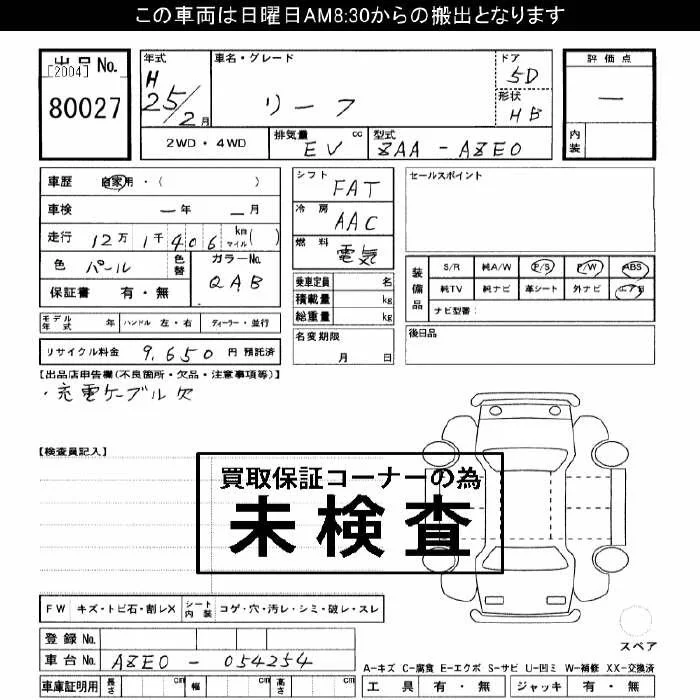 この車両は日曜日AM8:30からの搬出となります
出品 No.
[2004]
80027
年式
H
25/2月
車名・グレード
リーフ
ドア
5D
形状
HB
評価点
—
内装
2WD・4WD
排気量 cc
EV
型式
ZAA-AZE0
車歴 自家用・( )
車検 —年 —月
走行 12万1千406 kmマイル( )
色 パール 色替
カラーNo.
QAB
保証書 有・無
シフト
FAT
冷房
AAC
燃料
電気
乗車定員 名
積載量 kg
総重量 kg
セールスポイント
装備品
S/R 純A/W P/S P/W ABS
純TV 純ナビ 革シート 外ナビ
ナビ型番:
モデル年式 年 ハンドル 左・右 ディーラー・並行
名変期限
月 日
後日品
リサイクル料金 9,650 円 預託済
【出品店申告欄(不良箇所・欠品・注意事項等)】
・充電ケーブル欠
【検査員記入】
買取保証コーナーの為
未検査
FW キズ・トビ石・割レX シート内装 コゲ・穴・汚レ・シミ・破レ・スレ
登録 No.
スペア
車台 No. AZE0-054254
A-キズ C-腐食 E-エクボ S-サビ U-凹ミ W-補修 XX-交換済
車庫証明用 長さ cm 幅 cm 高さ cm
工具 有・無 ジャッキ 有・無